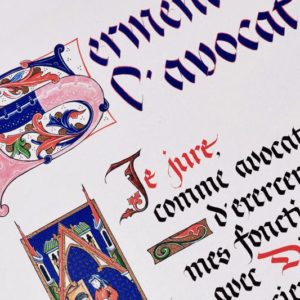 Serment
d'avocat
Je jure,
comme avocat
d'exercer
mes foncti
avec